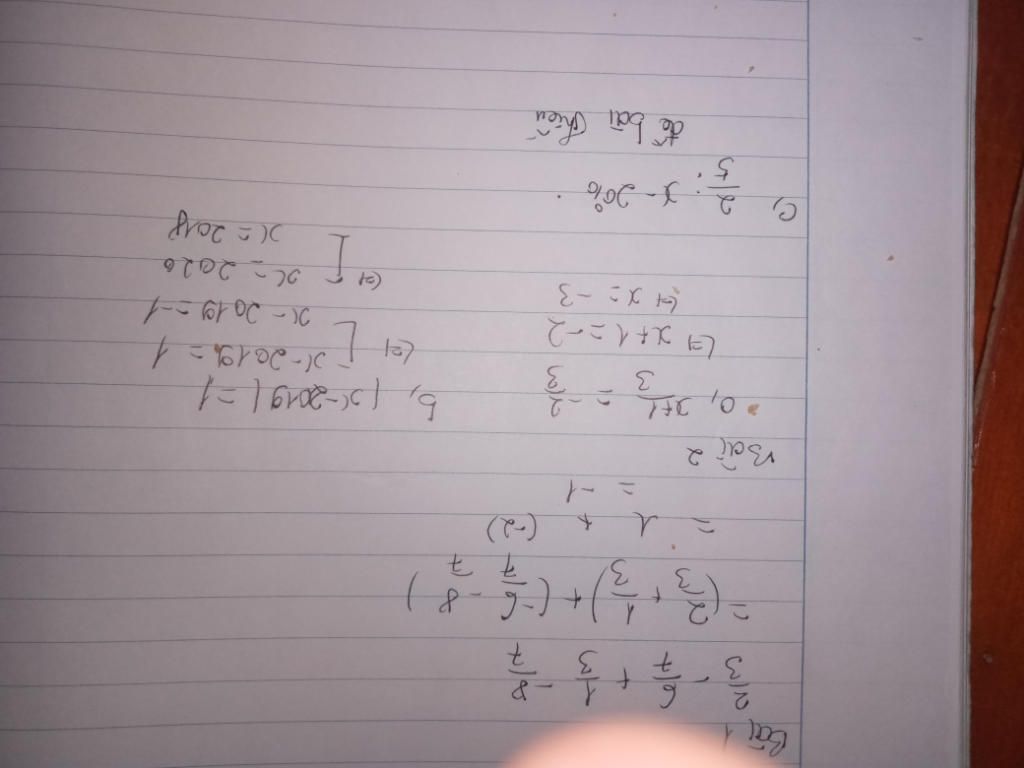 Bài 1
2/3 - 6/7 + 1/3 - 8/7
= (2/3 + 1/3) + (-6/7 - 8/7)
= 1 + (-2)
= -1
Bài 2
a, x+1/3 = -2/3
⇔ x+1 = -2
⇔ x = -3
b, |x-2019| = 1
⇔ [ x-2019 = 1
x-2019 = -1
⇔ [ x = 2020
x = 2018
c, 2/5 : x - 20%
đề bài thiếu